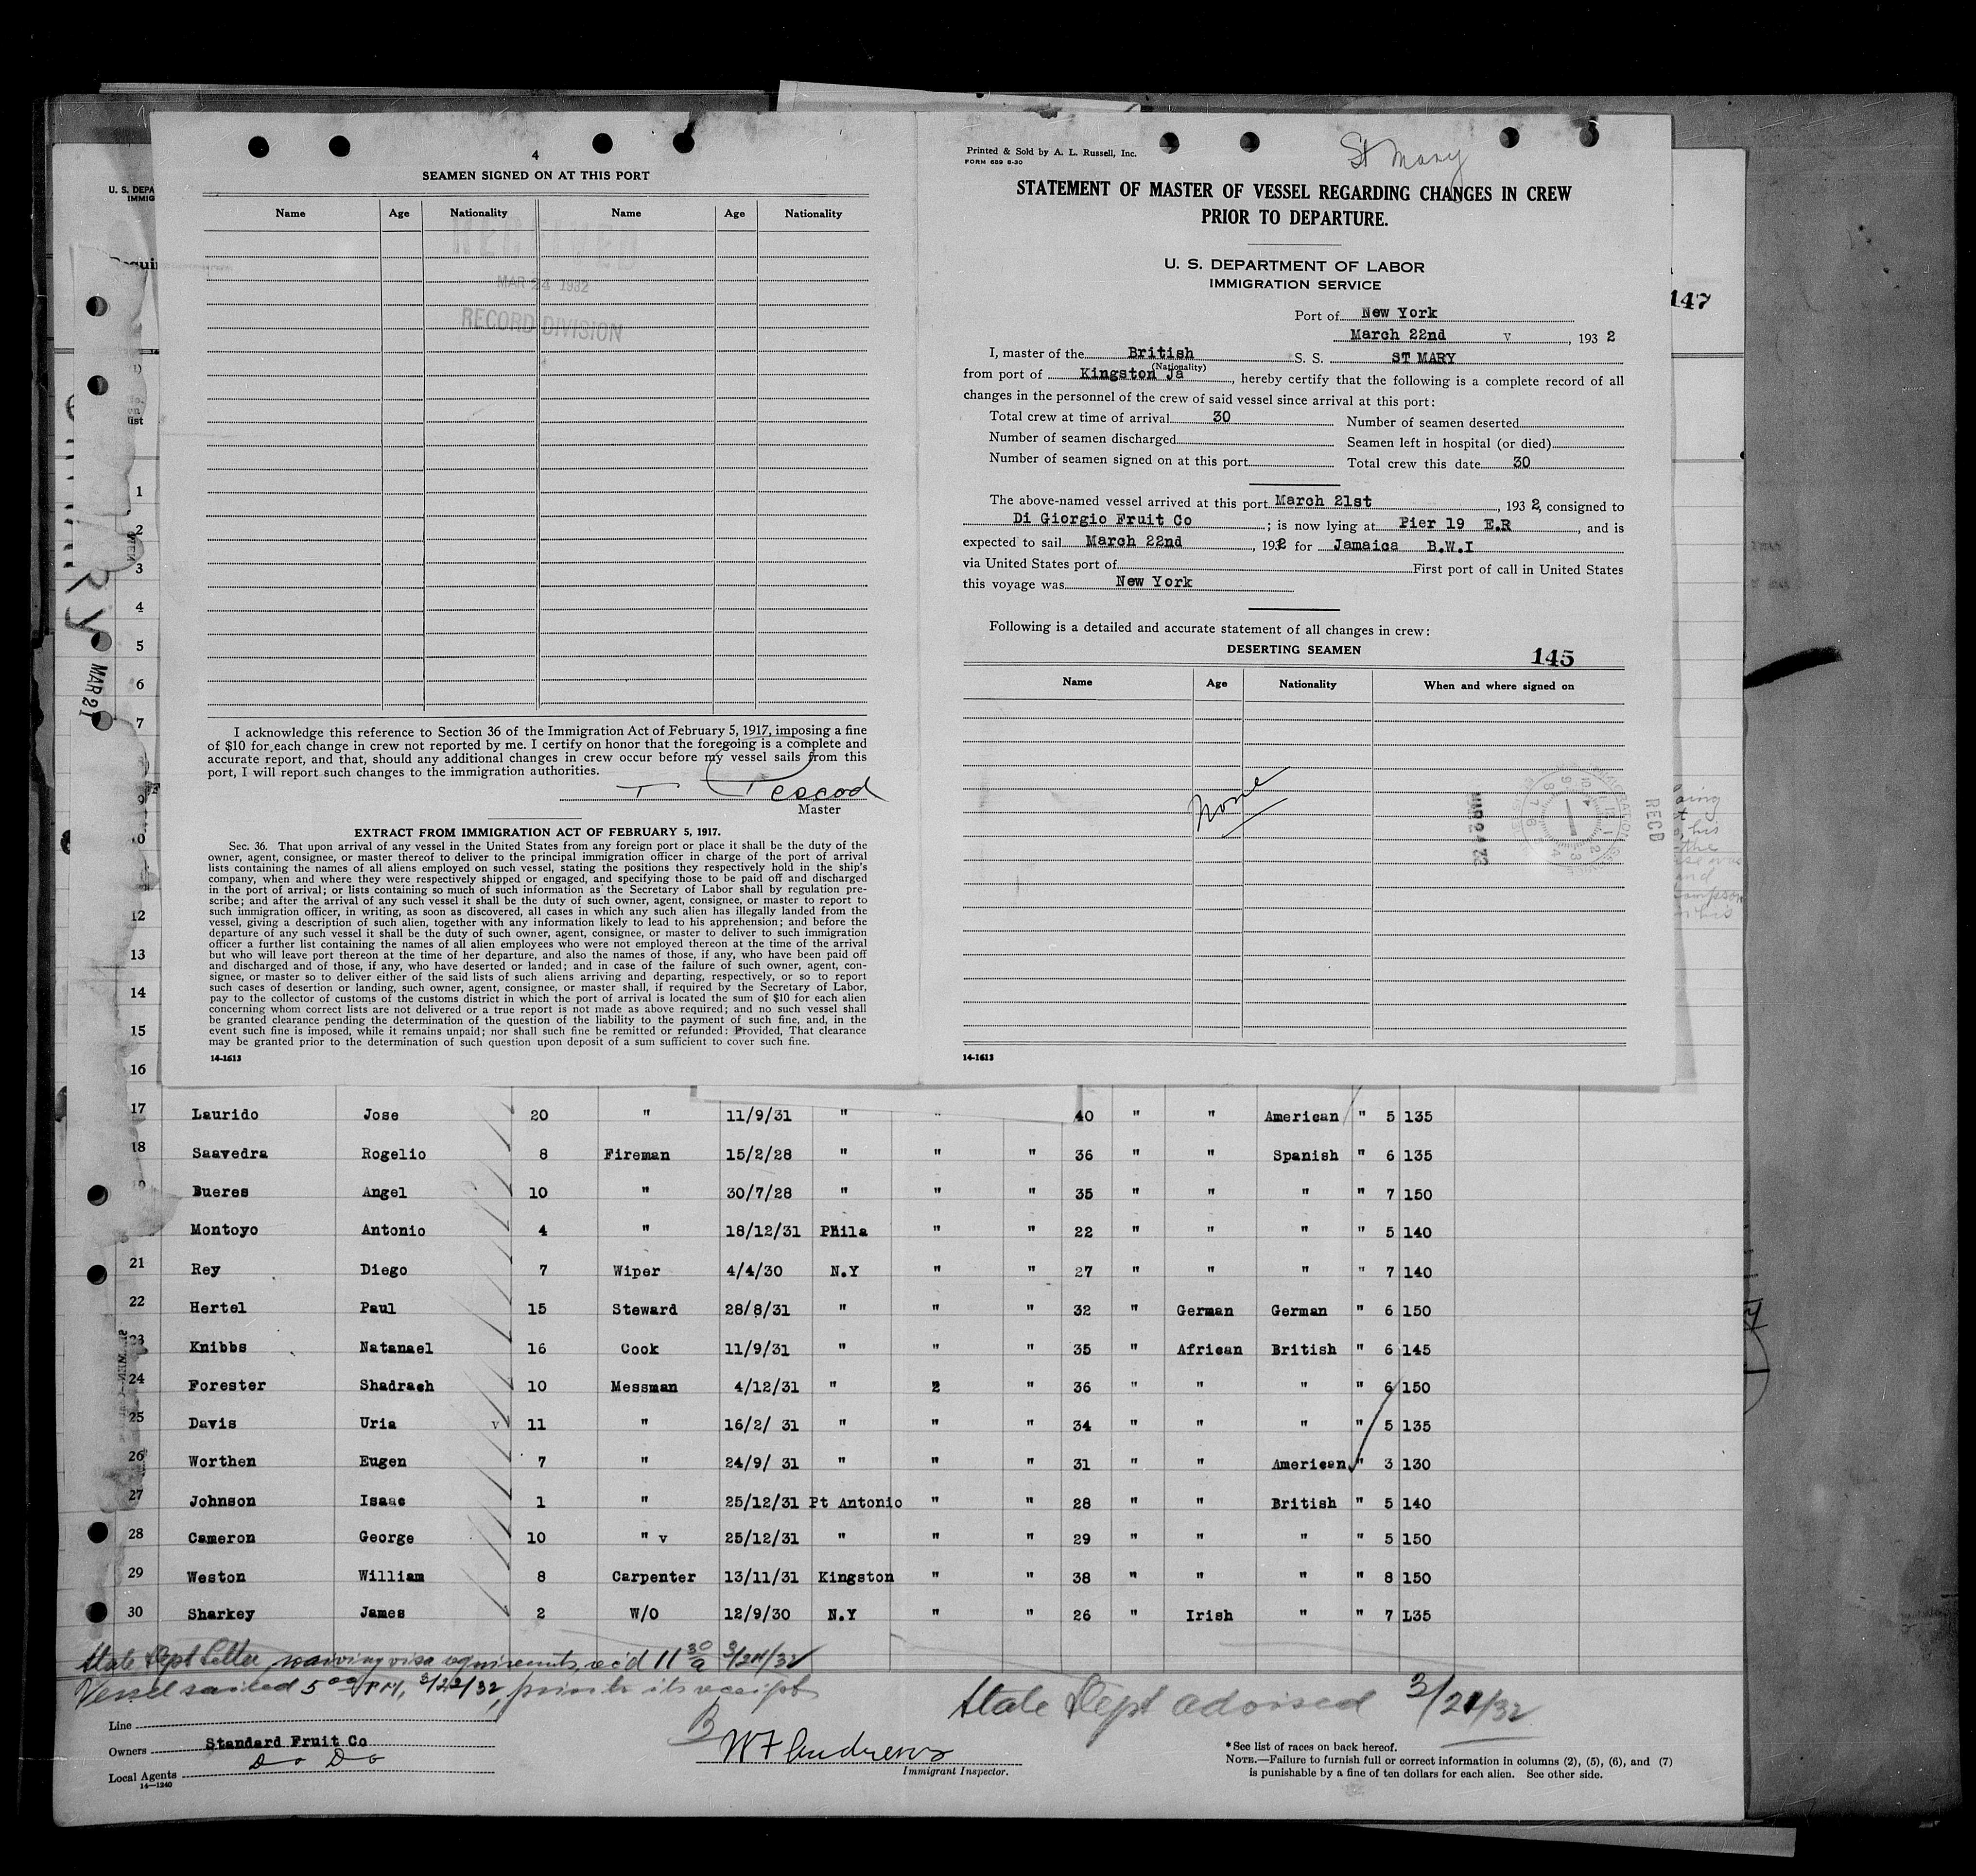 4
SEAMEN SIGNED ON AT THIS PORT
Name Age Nationality Name Age Nationality
RECEIVED
MAR 24 1932
RECORD DIVISION
I acknowledge this reference to Section 36 of the Immigration Act of February 5, 1917, imposing a fine
of $10 for each change in crew not reported by me. I certify on honor that the foregoing is a complete and
accurate report, and that, should any additional changes in crew occur before my vessel sails from this
port, I will report such changes to the immigration authorities.
Master
EXTRACT FROM IMMIGRATION ACT OF FEBRUARY 5, 1917.
Sec. 36. That upon arrival of any vessel in the United States from any foreign port or place it shall be the duty of the
owner, agent, consignee, or master thereof to deliver to the principal immigration officer in charge of the port of arrival
lists containing the names of all aliens employed on such vessel, stating the positions they respectively hold in the ship's
company, when and where they were respectively shipped or engaged, and specifying those to be paid off and discharged
in the port of arrival; or lists containing so much of such information as the Secretary of Labor shall by regulation pre-
scribe; and after the arrival of any such vessel it shall be the duty of such owner, agent, consignee, or master to report to
such immigration officer, in writing, as soon as discovered, all cases in which any such alien has illegally landed from the
vessel, giving a description of such alien, together with any information likely to lead to his apprehension; and before the
departure of any such vessel it shall be the duty of such owner, agent, consignee, or master to deliver to such immigration
officer a further list containing the names of all alien employees who were not employed thereon at the time of the arrival
but who will leave port thereon at the time of her departure, and also the names of those, if any, who have been paid off
and discharged and of those, if any, who have deserted or landed; and in case of the failure of such owner, agent, con-
signee, or master so to deliver either of the said lists of such aliens arriving and departing, respectively, or so to report
such cases of desertion or landing, such owner, agent, consignee, or master shall, if required by the Secretary of Labor,
pay to the collector of customs of the customs district in which the port of arrival is located the sum of $10 for each alien
concerning whom correct lists are not delivered or a true report is not made as above required; and no such vessel shall
be granted clearance pending the determination of the question of the liability to the payment of such fine, and, in the
event such fine is imposed, while it remains unpaid; nor shall such fine be remitted or refunded: Provided, That clearance
may be granted prior to the determination of such question upon deposit of a sum sufficient to cover such fine.
14-1613
Printed & Sold by A. L. Russell, Inc.
FORM 689 6-30
St Mary
STATEMENT OF MASTER OF VESSEL REGARDING CHANGES IN CREW
PRIOR TO DEPARTURE.
U. S. DEPARTMENT OF LABOR
IMMIGRATION SERVICE
Port of New York
March 22nd v , 193 2
I, master of the British S. S. ST MARY
(Nationality)
from port of Kingston Ja , hereby certify that the following is a complete record of all
changes in the personnel of the crew of said vessel since arrival at this port:
Total crew at time of arrival 30 Number of seamen deserted
Number of seamen discharged Seamen left in hospital (or died)
Number of seamen signed on at this port Total crew this date 30
The above-named vessel arrived at this port March 21st , 193 2, consigned to
Di Giorgio Fruit Co ; is now lying at Pier 19 E.R , and is
expected to sail March 22nd , 1932 for Jamaica B.W.I
via United States port of First port of call in United States
this voyage was New York
Following is a detailed and accurate statement of all changes in crew:
DESERTING SEAMEN 145
Name Age Nationality When and where signed on
None
RECD
14-1613
147
U. S. DEPA
IMMIG
MAR 21
1
2
3
4
5
6
7
9
12
13
14
15
16
17 Laurido Jose 20 " 11/9/31 " " 40 " " American " 5 135
18 Saavedra Rogelio 8 Fireman 15/2/28 " " " 36 " " Spanish " 6 135
Bueres Angel 10 " 30/7/28 " " " 35 " " " " 7 150
Montoyo Antonio 4 " 18/12/31 Phila " " 22 " " " " 5 140
21 Rey Diego 7 Wiper 4/4/30 N.Y " " 27 " " " " 7 140
22 Hertel Paul 15 Steward 28/8/31 " " " 32 " German German " 6 150
23 Knibbs Natanael 16 Cook 11/9/31 " " " 35 " African British " 6 145
24 Forester Shadrach 10 Messman 4/12/31 " 2 " 36 " " " " 6 150
25 Davis Uria v 11 " 16/2/ 31 " " " 34 " " " " 5 135
26 Worthen Eugen 7 " 24/9/ 31 " " " 31 " " American " 3 130
27 Johnson Isaac 1 " 25/12/31 Pt Antonio " " 28 " " British " 5 140
28 Cameron George 10 " v 25/12/31 " " " 29 " " " " 5 150
29 Weston William 8 Carpenter 13/11/31 Kingston " " 38 " " " " 8 150
30 Sharkey James 2 W/O 12/9/30 N.Y " " 26 " Irish " " 7 135
State Dept Letter, waiving visa requirements, rec'd 11 30 a 3/24/32
Vessel sailed 5 00 PM, 3/22/32, prior to its receipt
State Dept advised 3/21/32
Line
Owners Standard Fruit Co
Local Agents Do Do
14-1240
W F Andrews
Immigrant Inspector.
*See list of races on back hereof.
NOTE.—Failure to furnish full or correct information in columns (2), (5), (6), and (7)
is punishable by a fine of ten dollars for each alien. See other side.